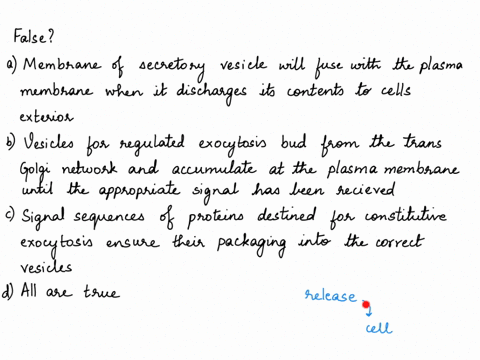 False?
a) Membrane of secretory vesicle will fuse with the plasma
membrane when it discharges its contents to cells
exterior
b) Vesicles for regulated exocytosis bud from the trans
Golgi network and accumulate at the plasma membrane
until the appropriate signal has been recieved
c) Signal sequences of proteins destined for constitutive
exocytosis ensure their packaging into the correct
vesicles
d) All are true
release
cell